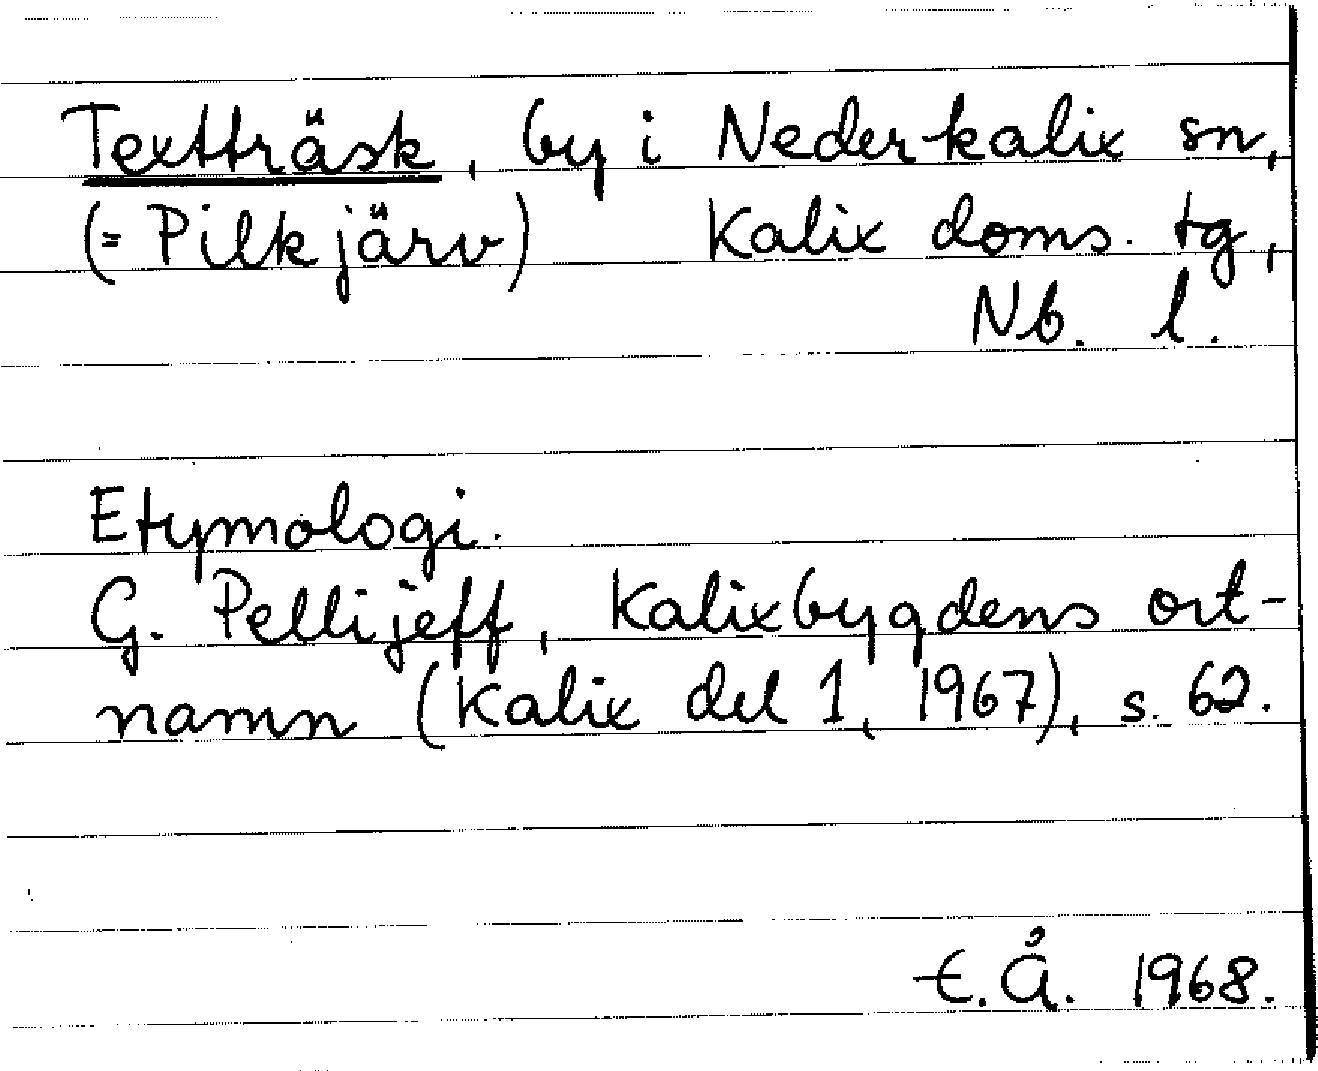 Textträsk, by i Nederkalix sn,
(= Pilkjärv) Kalix doms. tg,
Nb. l.
Etymologi.
G. Pellijeff, Kalixbygdens ort-
namn (Kalix del 1, 1967), s. 62.
E.Å. 1968.